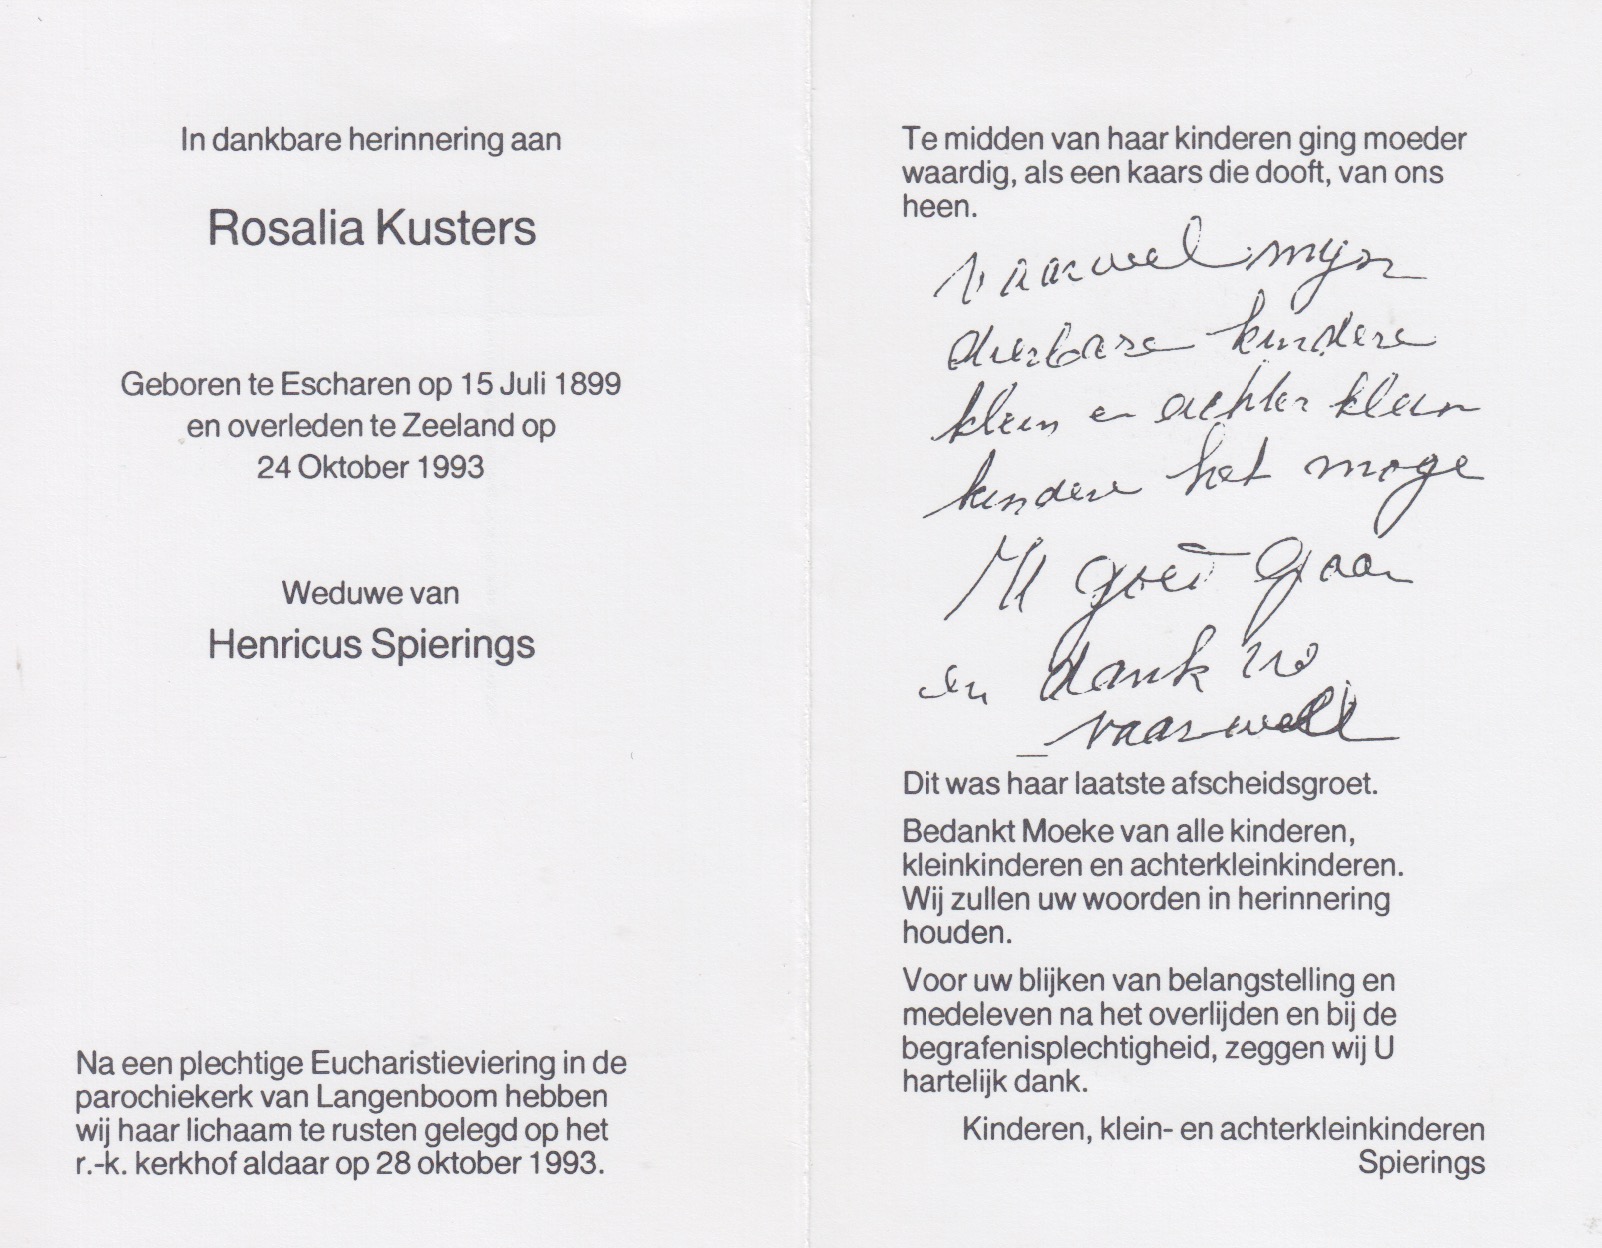 In dankbare herinnering aan
Rosalia Kusters
Geboren te Escharen op 15 Juli 1899
en overleden te Zeeland op
24 Oktober 1993
Weduwe van
Henricus Spierings
Na een plechtige Eucharistieviering in de
parochiekerk van Langenboom hebben
wij haar lichaam te rusten gelegd op het
r.-k. kerkhof aldaar op 28 oktober 1993.
Te midden van haar kinderen ging moeder
waardig, als een kaars die dooft, van ons
heen.
vaarwel mijn
dierbare kindere
klein en achter klein
kindere het moge
U goed gaan
en dank U
vaarwel
Dit was haar laatste afscheidsgroet.
Bedankt Moeke van alle kinderen,
kleinkinderen en achterkleinkinderen.
Wij zullen uw woorden in herinnering
houden.
Voor uw blijken van belangstelling en
medeleven na het overlijden en bij de
begrafenisplechtigheid, zeggen wij U
hartelijk dank.
Kinderen, klein- en achterkleinkinderen
Spierings